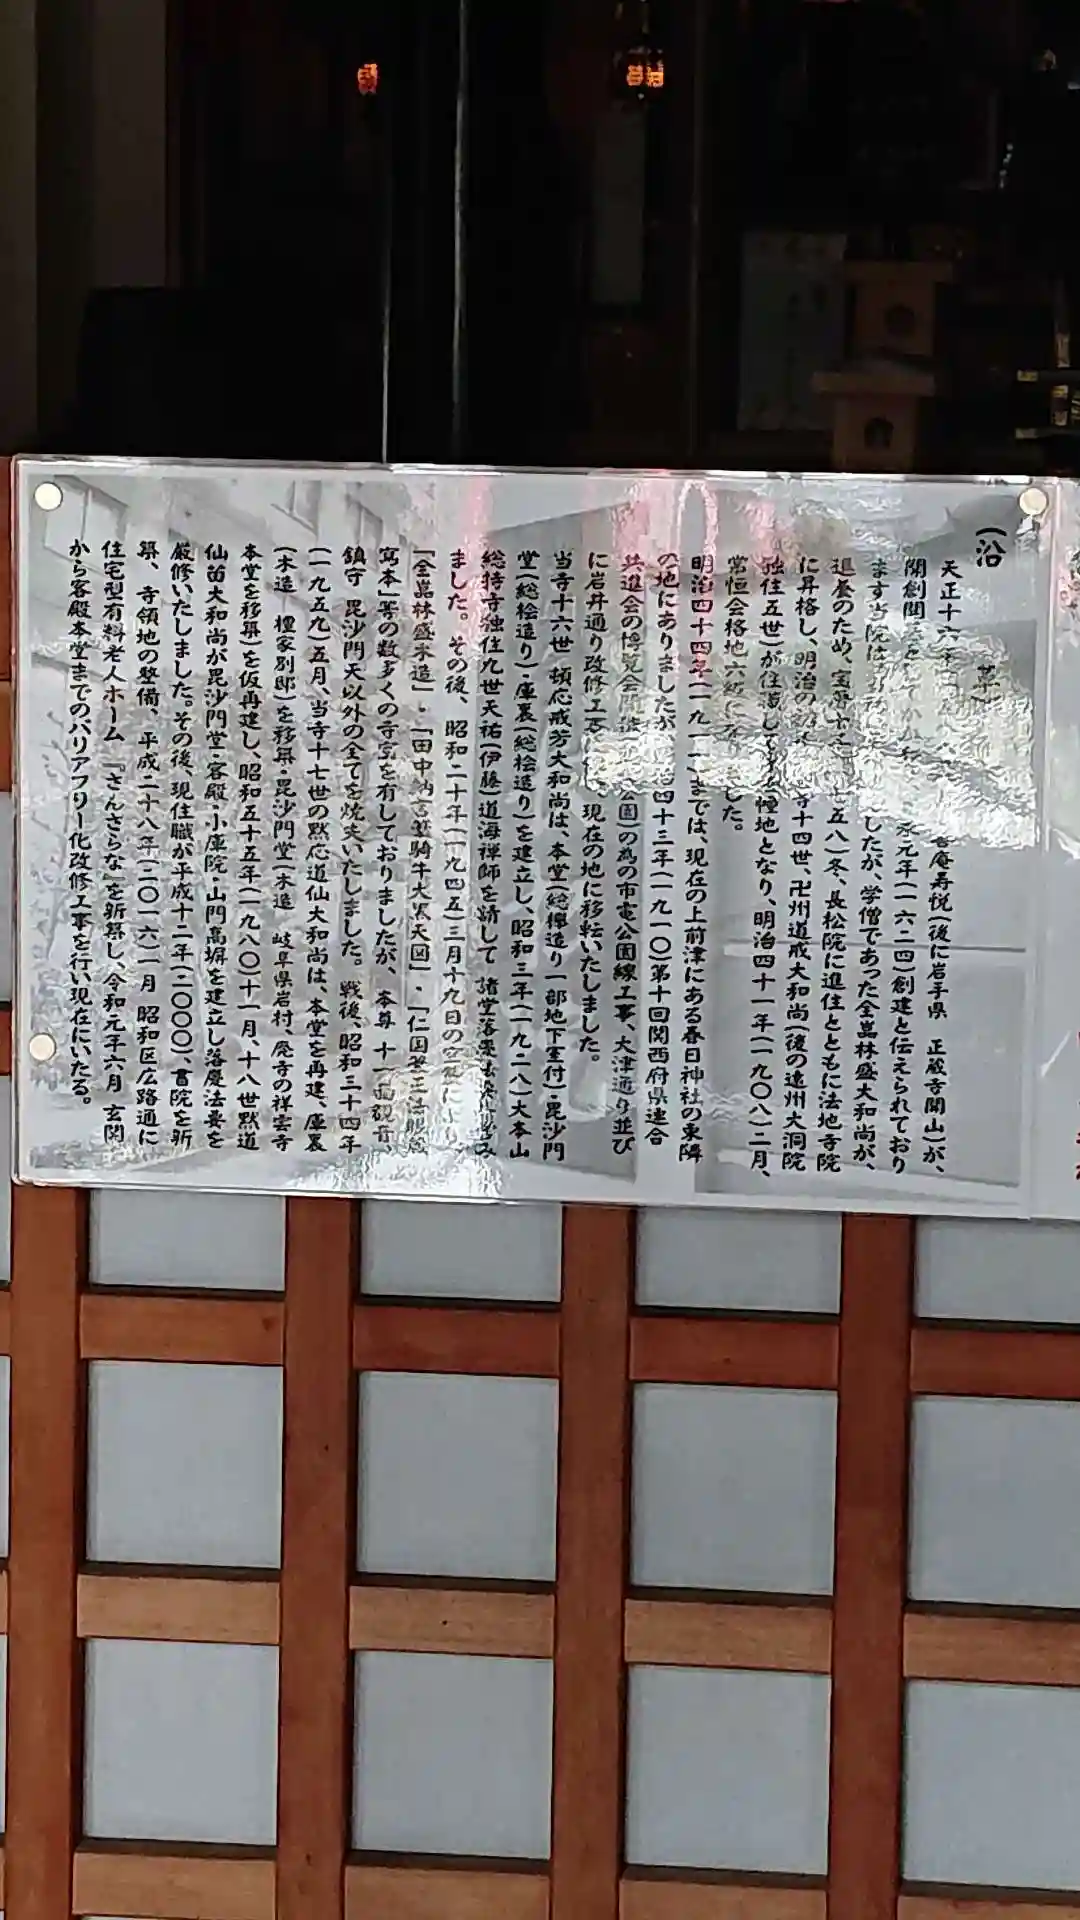 (沿 革
天正十六年 善庵寿悦(後に岩手県 正蔵寺開山)が、
開創開 永元年(一六二四)創建と伝えられており
ます当院は したが、学僧であった全嵓林盛大和尚が、
退養のため、宝暦 五八)冬、長松院に進住とともに法地寺院
に昇格し、明治の 寺十四世、卍州道戒大和尚(後の遠州大洞院
独住五世)が住 し 幢地となり、明治四十一年(一九〇八)二月、
常恒会格地六 した。
明治四十四年(一九一一)までは、現在の上前津にある春日神社の東隣
の地にありましたが 四十三年(一九一〇)第十回関西府県連合
共進会の博覧会開 公園)の為の市電公園線工事、大津通り並び
に岩井通り改修工 現在の地に移転いたしました。
当寺十六世 頓応戒芳大和尚は、本堂(総欅造り一部地下室付)・毘沙門
堂(総桧造り)・庫裏(総桧造り)を建立し、昭和三年(一九二八)大本山
総持寺独住九世天祐(伊藤)道海禅師を請して 諸堂落慶法 み
ました。その後、昭和二十年(一九四五)三月十九日の空
「全嵓林盛木造」・「田中納言筆騎牛大黒天図」・「仁国筆正法眼蔵
寫本」等の数多くの寺宝を有しておりましたが、本尊 十一面観音、
鎮守 毘沙門天以外の全てを焼失いたしました。戦後、昭和三十四年
(一九五九)五月、当寺十七世の黙応道仙大和尚は、本堂を再建、庫裏
(木造 檀家別邸)を移築・毘沙門堂(木造 岐阜県岩村、廃寺の祥雲寺
本堂を移築)を仮再建し、昭和五十五年(一九八〇)十一月、十八世黙道
仙苗大和尚が毘沙門堂・客殿・小庫院・山門高塀を建立し落慶法要を
厳修いたしました。その後、現住職が平成十二年(二〇〇〇)、書院を新
築、寺領地の整備、平成二十八年(二〇一六)一月 昭和区広路通に
住宅型有料老人ホーム『さんさらな』を新築し、令和元年六月 玄関
から客殿本堂までのバリアフリー化改修工事を行い現在にいたる。